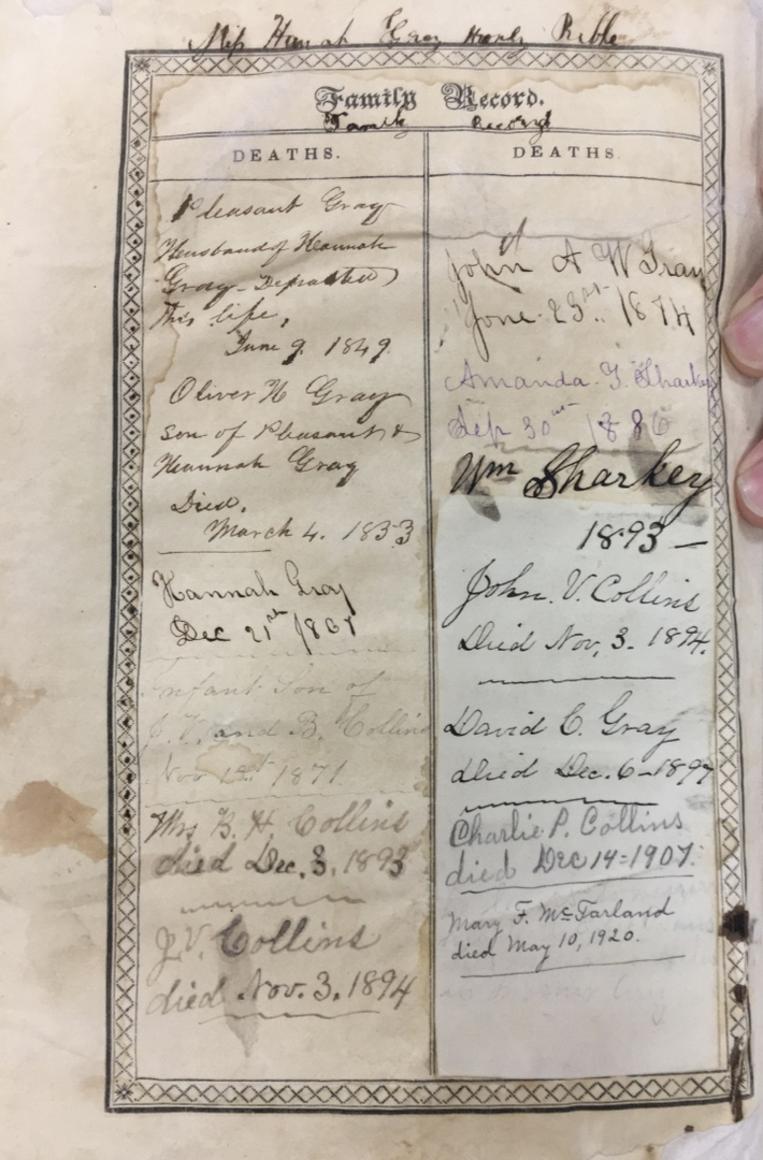 Miss Hannah Gray Bible
Family Record.
Family Record
DEATHS.
Pleasant Gray
Husband of Hannah
Gray - Departed
This life,
June 9. 1849.
Oliver H Gray
son of Pleasant &
Hannah Gray
Died,
March 4. 1833
Hannah Gray
Dec 21st 1867
Infant Son of
J. V. and B. Collins
Nov 1871
Mrs B. H. Collins
died Dec. 3, 1893
J. V. Collins
died Nov. 3. 1894
DEATHS.
John A W Gray
June 23rd 1874
Amanda G. Sharkey
Sep 30 1886
Wm Sharkey
1893 —
John. V. Collins
Died Nov. 3. 1894.
David C. Gray
died Dec. 6 - 1897
Charlie P. Collins
died Dec 14 = 1907.
Mary F. McFarland
died May 10, 1920.